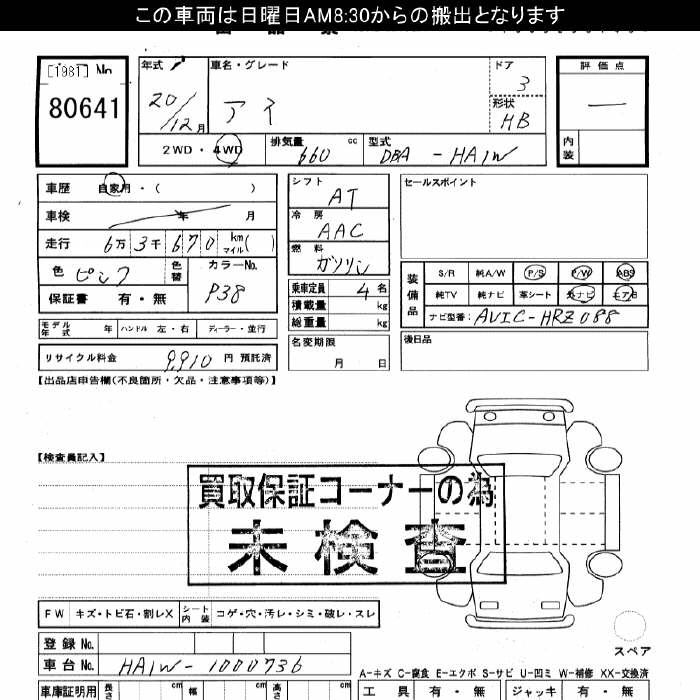 この車両は日曜日AM8:30からの搬出となります
[1981] No
80641
年式
20/12月
車名・グレード
アイ
ドア
3
形状
HB
評価点
—
内装
2WD・4WD
排気量 660 cc
型式 DBA - HA1W
車歴 自家用・( )
車検 年 月
走行 6万3千670 km マイル( )
色 ピンク 色替
カラーNo.
P38
保証書 有・無
シフト
AT
冷房
AAC
燃料
ガソリン
乗車定員 4 名
積載量 kg
総重量 kg
名変期限
月 日
セールスポイント
装備品
S/R 純A/W P/S P/W ABS
純TV 純ナビ 革シート 外ナビ エアB
ナビ型番: AVIC-HRZ088
後日品
モデル年式 年 ハンドル 左・右 ディーラー・並行
リサイクル料金 9,910 円 預託済
【出品店申告欄(不良箇所・欠品・注意事項等)】
【検査員記入】
買取保証コーナーの為
未検査
FW キズ・トビ石・割レX シート内装 コゲ・穴・汚レ・シミ・破レ・スレ
スペア
登録No.
車台No. HA1W-1000736
A-キズ C-腐食 E-エクボ S-サビ U-凹ミ W-補修 XX-交換済
車庫証明用 長さ cm 幅 cm 高さ cm
工具 有・無 ジャッキ 有・無